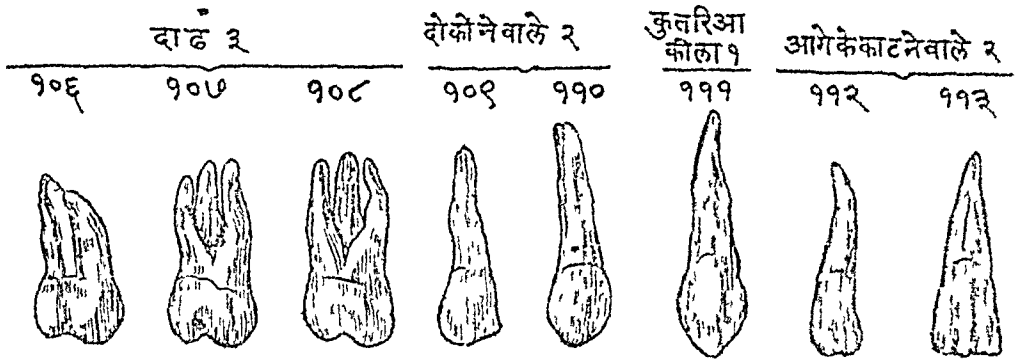 दाढें ३
दोकोंनेवाले २
कुतरिआ
कीला १
आगेकेकाटनेवाले २
१०६ १०७ १०८ १०९ ११० १११ ११२ ११३